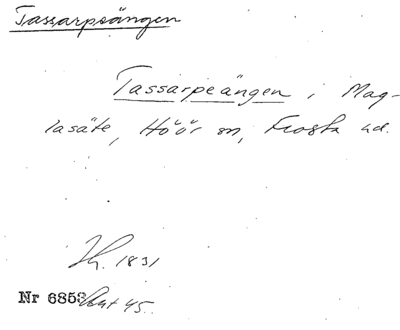 Tassarpsängen
Tassarpeängen i Mag-
lasäte, Höör sn, Frosta hd.
1831
Nr 6853 Akt 45.